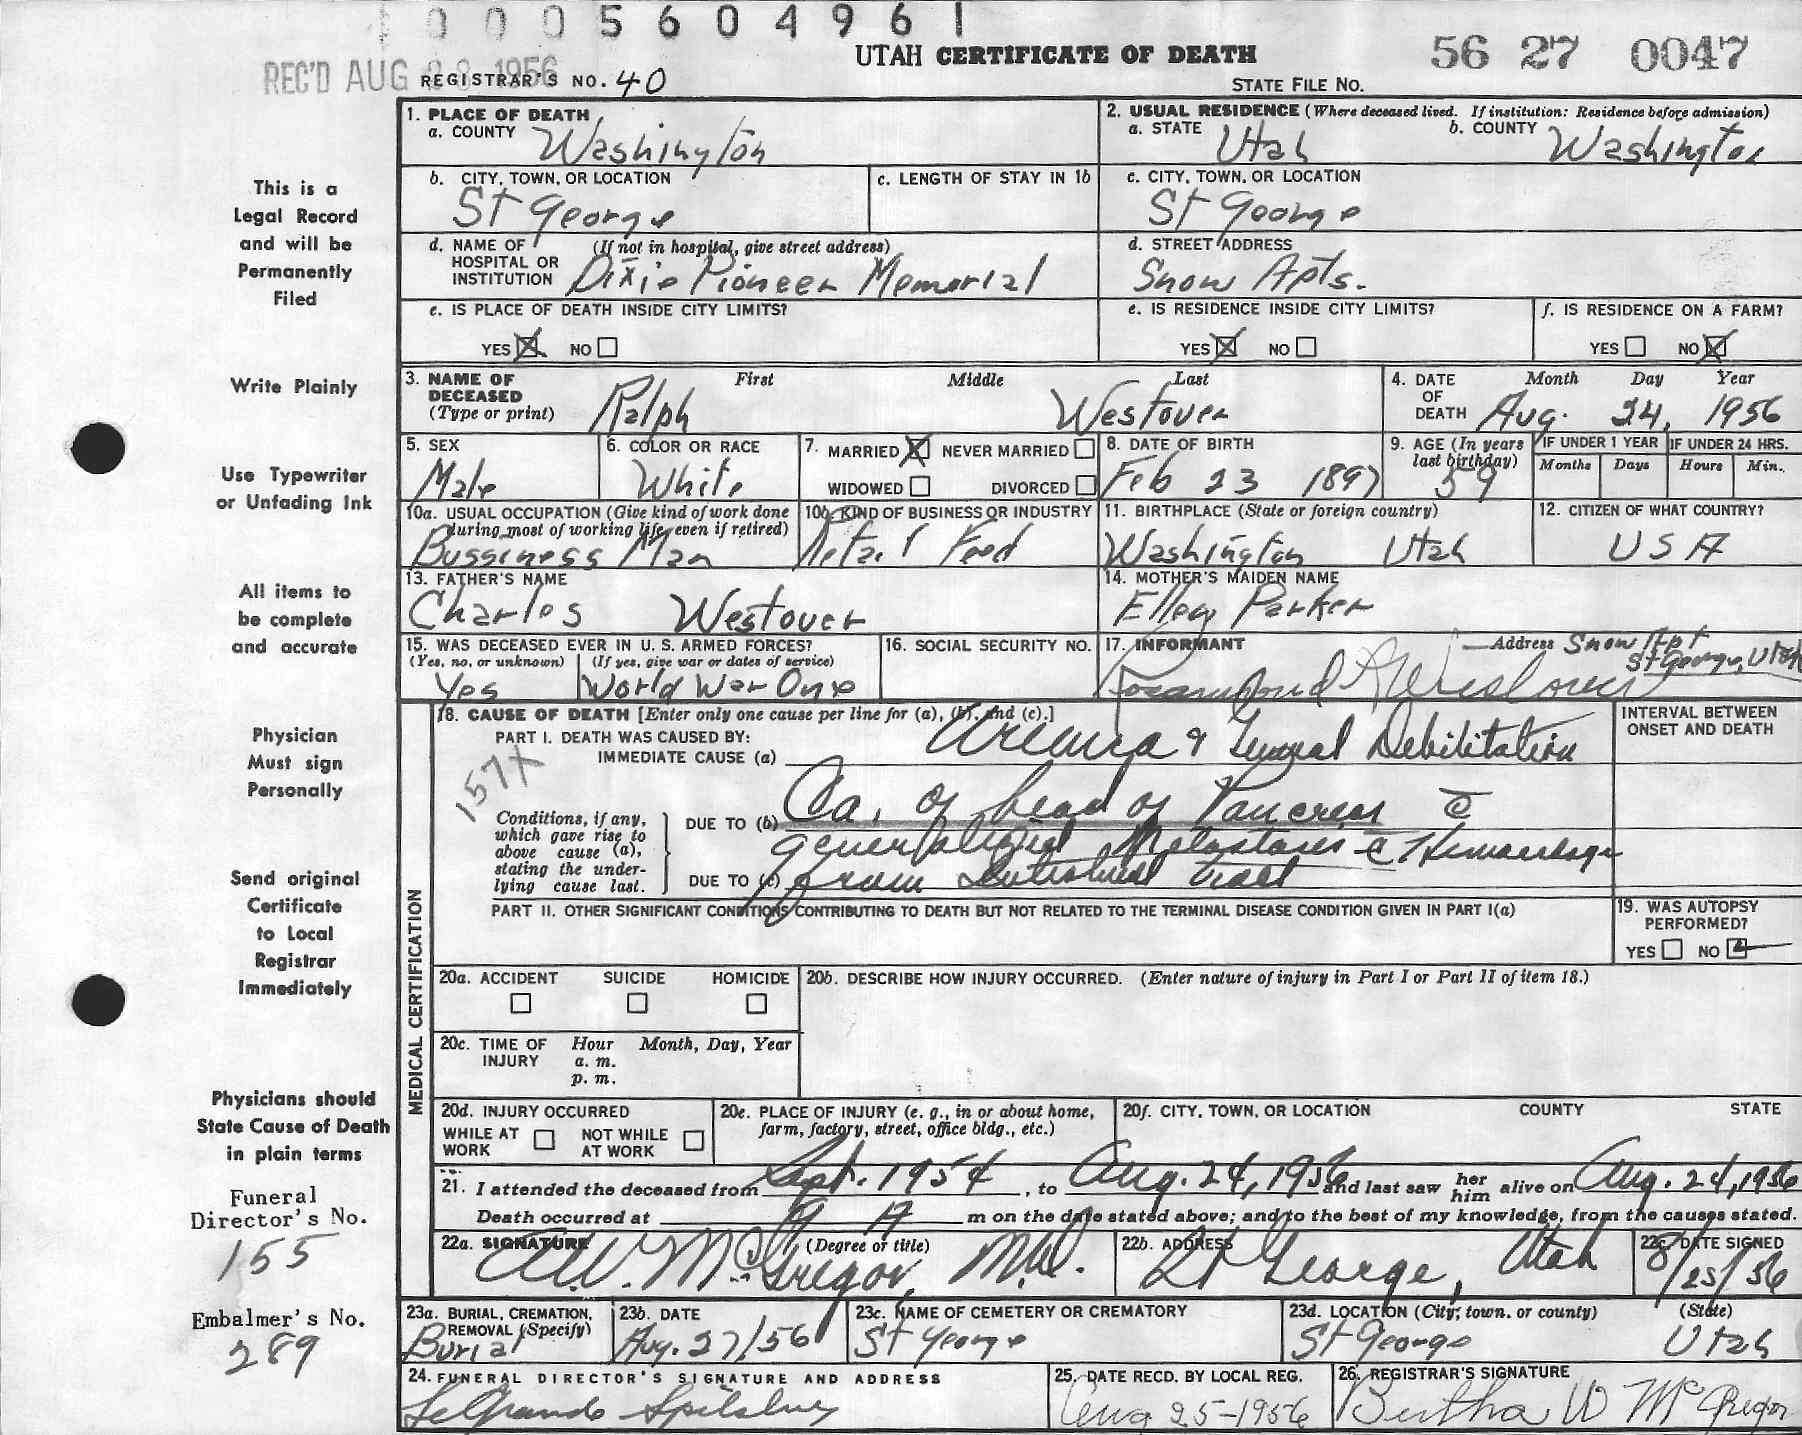 0 0 0 5 6 0 4 9 6 1
UTAH CERTIFICATE OF DEATH
56 27 0047
REC'D AUG 1956
REGISTRAR'S NO. 40
STATE FILE NO.
1. PLACE OF DEATH
a. COUNTY Washington
2. USUAL RESIDENCE (Where deceased lived. If institution: Residence before admission)
a. STATE Utah b. COUNTY Washington
b. CITY, TOWN, OR LOCATION
St George
c. LENGTH OF STAY IN 1b
c. CITY, TOWN, OR LOCATION
St George
d. NAME OF HOSPITAL OR INSTITUTION (If not in hospital, give street address)
Dixie Pioneer Memorial
d. STREET ADDRESS
Snow Apts.
e. IS PLACE OF DEATH INSIDE CITY LIMITS?
YES NO
e. IS RESIDENCE INSIDE CITY LIMITS?
YES NO
f. IS RESIDENCE ON A FARM?
YES NO
3. NAME OF DECEASED (Type or print)
First Middle Last
Ralph Westover
4. DATE OF DEATH
Month Day Year
Aug. 24, 1956
5. SEX
Male
6. COLOR OR RACE
White
7. MARRIED NEVER MARRIED
WIDOWED DIVORCED
8. DATE OF BIRTH
Feb 23 1897
9. AGE (In years last birthday)
59
IF UNDER 1 YEAR
Months Days
IF UNDER 24 HRS.
Hours Min.
10a. USUAL OCCUPATION (Give kind of work done during most of working life, even if retired)
Bussiness Man
10b. KIND OF BUSINESS OR INDUSTRY
Retail Food
11. BIRTHPLACE (State or foreign country)
Washington Utah
12. CITIZEN OF WHAT COUNTRY?
USA
13. FATHER'S NAME
Charles Westover
14. MOTHER'S MAIDEN NAME
Ellen Parker
15. WAS DECEASED EVER IN U. S. ARMED FORCES?
(Yes, no, or unknown) (If yes, give war or dates of service)
Yes World War One
16. SOCIAL SECURITY NO.
17. INFORMANT Address Snow Apt
St George, Utah
Westover
18. CAUSE OF DEATH [Enter only one cause per line for (a), (b), and (c).]
PART I. DEATH WAS CAUSED BY:
IMMEDIATE CAUSE (a) Uremia & General Debilitation
157X
Conditions, if any, which gave rise to above cause (a), stating the underlying cause last.
DUE TO (b) Ca. of head of Pancreas c̄
generalized Metastases c̄ Hemorrhage
DUE TO (c) from Intestinal tract
INTERVAL BETWEEN ONSET AND DEATH
PART II. OTHER SIGNIFICANT CONDITIONS CONTRIBUTING TO DEATH BUT NOT RELATED TO THE TERMINAL DISEASE CONDITION GIVEN IN PART I(a)
19. WAS AUTOPSY PERFORMED?
YES NO
MEDICAL CERTIFICATION
20a. ACCIDENT SUICIDE HOMICIDE
20b. DESCRIBE HOW INJURY OCCURRED. (Enter nature of injury in Part I or Part II of item 18.)
20c. TIME OF INJURY Hour Month, Day, Year
a. m.
p. m.
20d. INJURY OCCURRED
WHILE AT WORK NOT WHILE AT WORK
20e. PLACE OF INJURY (e. g., in or about home, farm, factory, street, office bldg., etc.)
20f. CITY, TOWN, OR LOCATION COUNTY STATE
21. I attended the deceased from Sept. 1954, to Aug. 24, 1956 and last saw her him alive on Aug. 24, 1956
Death occurred at 9 A m on the date stated above; and to the best of my knowledge, from the causes stated.
22a. SIGNATURE (Degree or title)
A.W. McGregor, M.D.
22b. ADDRESS
St George, Utah
22c. DATE SIGNED
8/25/56
23a. BURIAL, CREMATION, REMOVAL (Specify)
Burial
23b. DATE
Aug. 27/56
23c. NAME OF CEMETERY OR CREMATORY
St George
23d. LOCATION (City, town, or county) (State)
St George Utah
24. FUNERAL DIRECTOR'S SIGNATURE AND ADDRESS
Spilsbury
25. DATE RECD. BY LOCAL REG.
Aug 25-1956
26. REGISTRAR'S SIGNATURE
Bertha W McGregor
This is a
Legal Record
and will be
Permanently
Filed
Write Plainly
Use Typewriter
or Unfading Ink
All items to
be complete
and accurate
Physician
Must sign
Personally
Send original
Certificate
to Local
Registrar
Immediately
Physicians should
State Cause of Death
in plain terms
Funeral
Director's No.
155
Embalmer's No.
289